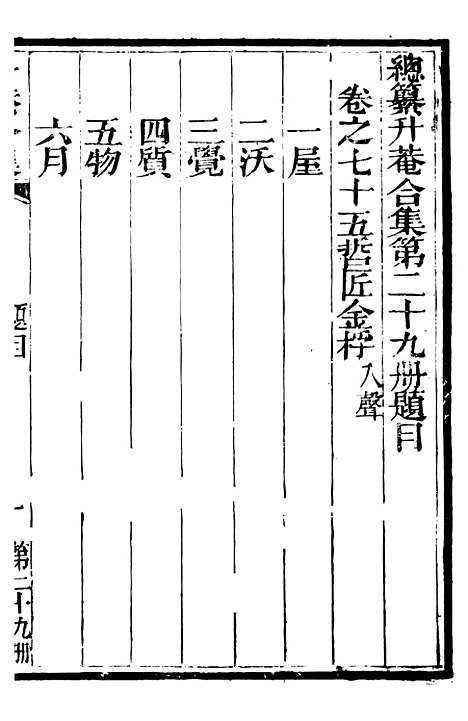 總纂升菴合集第二十九册題目
卷之七十五哲匠金桴入聲
一屋
二沃
三覺
四質
五物
六月
題目
一
第二十九册